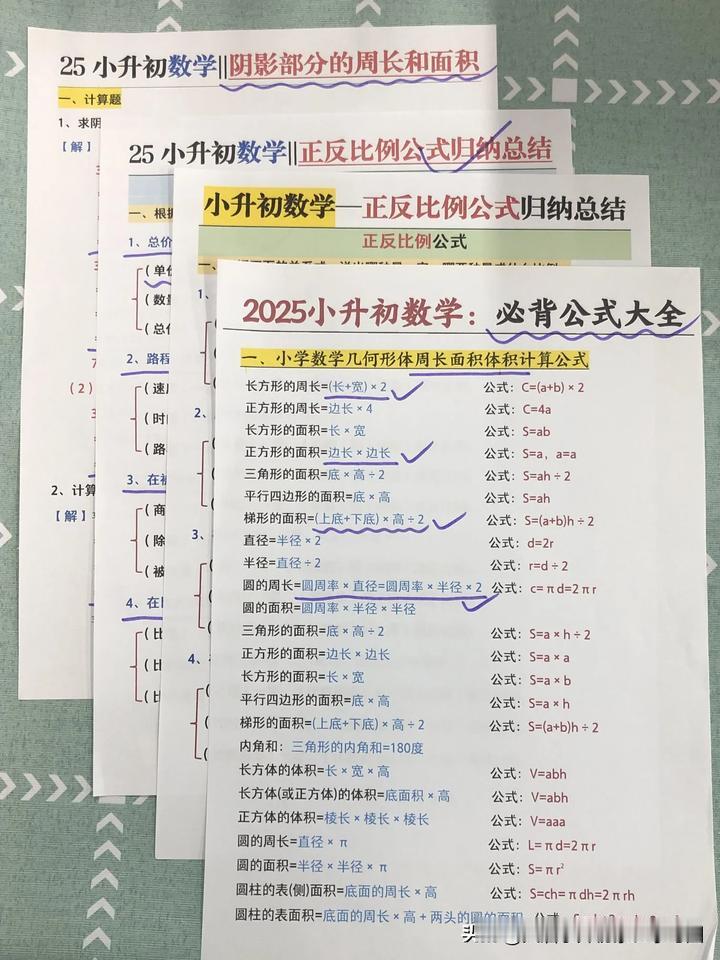 25 小升初数学||阴影部分的周长和面积
一、计算题
1、求阴
【解】
(2)
2、计算
【解】
25 小升初数学||正反比例公式归纳总结
一、根据
1、总价
(单价
(数量
(总价
2、路程
(速度
(时
(路
3、在被
(商
(除
(被
4、在比
(比
(比
(比
小升初数学—正反比例公式归纳总结
正反比例公式
1、
2、
3、
4、
2025小升初数学：必背公式大全
一、小学数学几何形体周长面积体积计算公式
长方形的周长=(长+宽)×2 公式：C=(a+b)×2
正方形的周长=边长×4 公式：C=4a
长方形的面积=长×宽 公式：S=ab
正方形的面积=边长×边长 公式：S=a，a=a
三角形的面积=底×高÷2 公式：S=ah÷2
平行四边形的面积=底×高 公式：S=ah
梯形的面积=(上底+下底)×高÷2 公式：S=(a+b)h÷2
直径=半径×2 公式：d=2r
半径=直径÷2 公式：r=d÷2
圆的周长=圆周率×直径=圆周率×半径×2 公式：c=πd=2πr
圆的面积=圆周率×半径×半径
三角形的面积=底×高÷2 公式：S=a×h÷2
正方形的面积=边长×边长 公式：S=a×a
长方形的面积=长×宽 公式：S=a×b
平行四边形的面积=底×高 公式：S=a×h
梯形的面积=(上底+下底)×高÷2 公式：S=(a+b)h÷2
内角和：三角形的内角和=180度
长方体的体积=长×宽×高 公式：V=abh
长方体(或正方体)的体积=底面积×高 公式：V=abh
正方体的体积=棱长×棱长×棱长 公式：V=aaa
圆的周长=直径×π 公式：L=πd=2πr
圆的面积=半径×半径×π 公式：S=πr²
圆柱的表(侧)面积=底面的周长×高 公式：S=ch=πdh=2πrh
圆柱的表面积=底面的周长×高+两头的圆的面积 公式